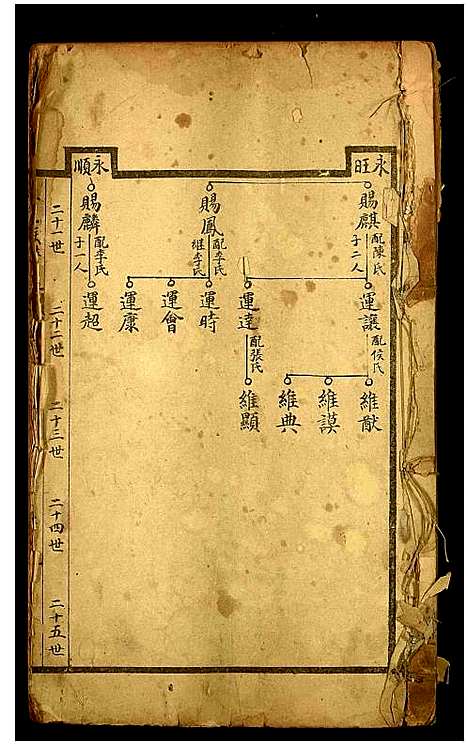 永旺
賜麒
配陳氏
子二人
運讓
配侯氏
維猷
維謨
維典
運達
配張氏
維顯
賜鳳
配李氏
繼李氏
運時
運會
運康
永順
賜麟
配李氏
子一人
運超
二十一世
二十二世
二十三世
二十四世
二十五世